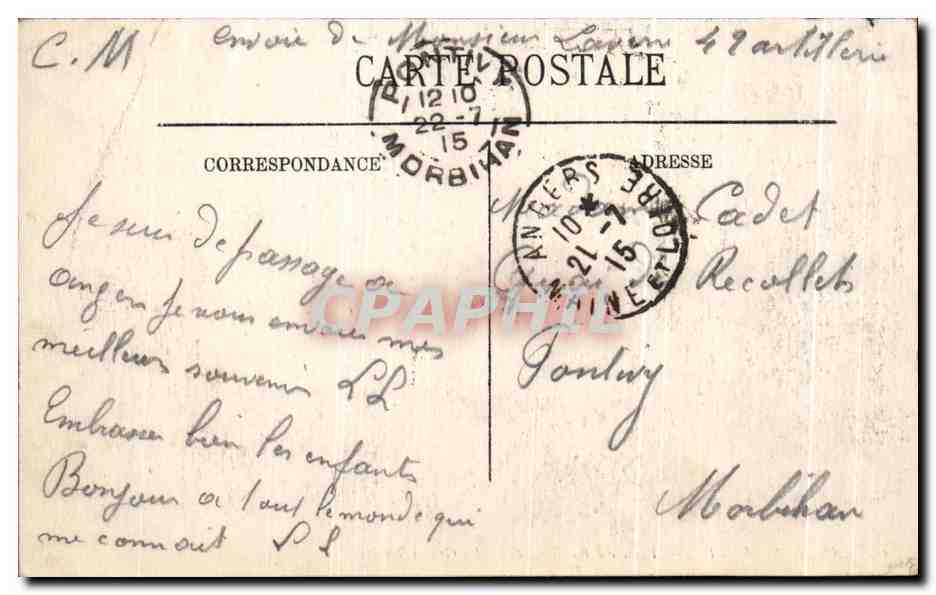 C. M envoie de Monsieur Laverre 42 artillerie
CARTE POSTALE
PONTIVY
12 10
22 -7
15
MORBIHAN
CORRESPONDANCE
ADRESSE
ANGERS
10 *
21 -7
15
MAINE ET LOIRE
Je suis de passage a
angers je vous envoies mes
meilleurs souvenirs L L
Embrasser bien les enfants
Bonjour a tout le monde qui
me connait L L
Madame Cadet
Quai Recollets
Pontivy
Morbihan
CPAPHIL